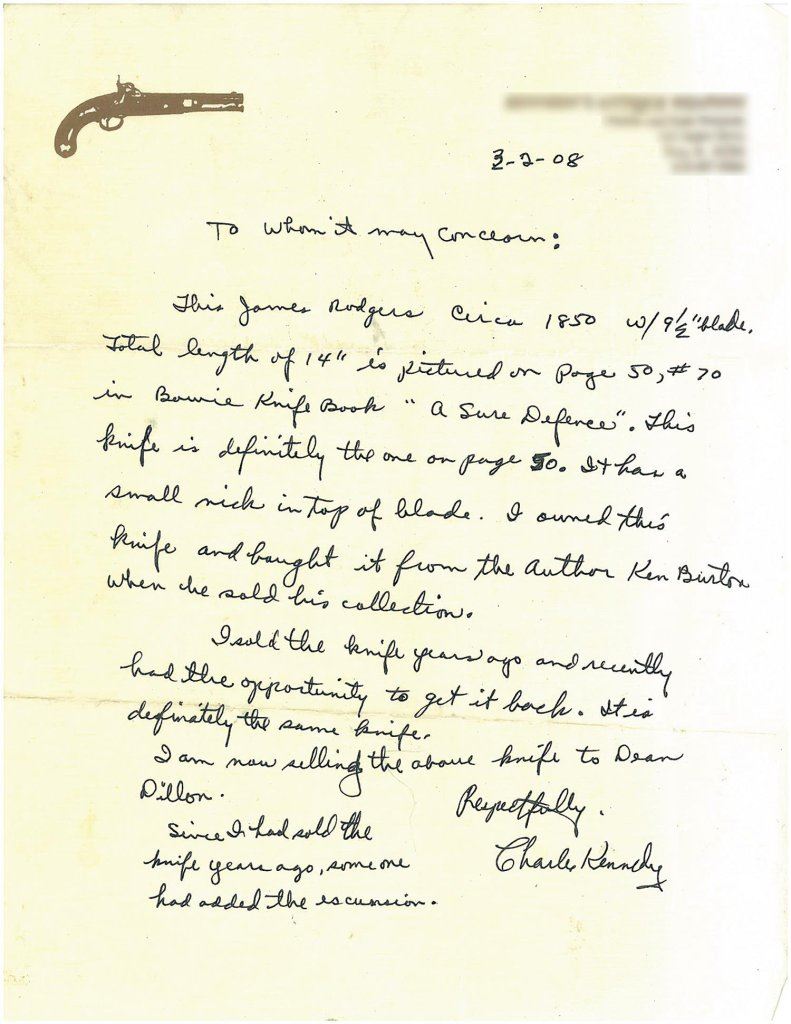 3-2-08
To whom it may concearn:
This James Rodgers Circa 1850 w/ 9½" blade.
Total length of 14" is pictured on page 50, #70
in Bowie Knife Book "A Sure Defence". This
knife is definitely the one on page 50. It has a
small nick in top of blade. I owned this
knife and bought it from the Author Ken Burton
when he sold his collection.
I sold the knife years ago and recently
had the opportunity to get it back. It is
definately the same knife.
I am now selling the above knife to Dean
Dillon.
Respectfully.
Charles Kennedy
Since I had sold the
knife years ago, someone
had added the escunsion.